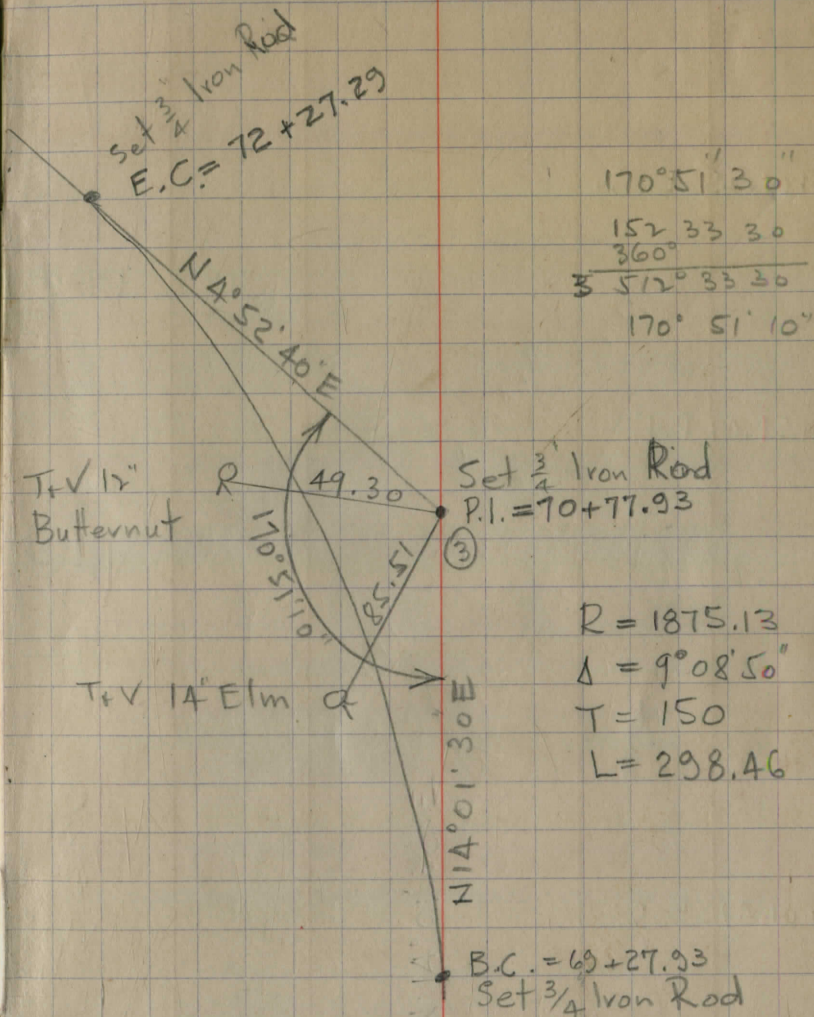 Set 3/4" Iron Rod
E.C. = 72+27.29
170°51'30"
152 33 30
360°
3 512° 33 30
170° 51' 10"
N 4°52'40" E
T+V 12"
Butternut
49.30
Set 3/4" Iron Rod
P.I. = 70+77.93
3
170°51'10"
85.51
T+V 14" Elm
R = 1875.13
Δ = 9°08'50"
T = 150
L = 298.46
N 14°01'30 E
B.C. = 69+27.93
Set 3/4" Iron Rod